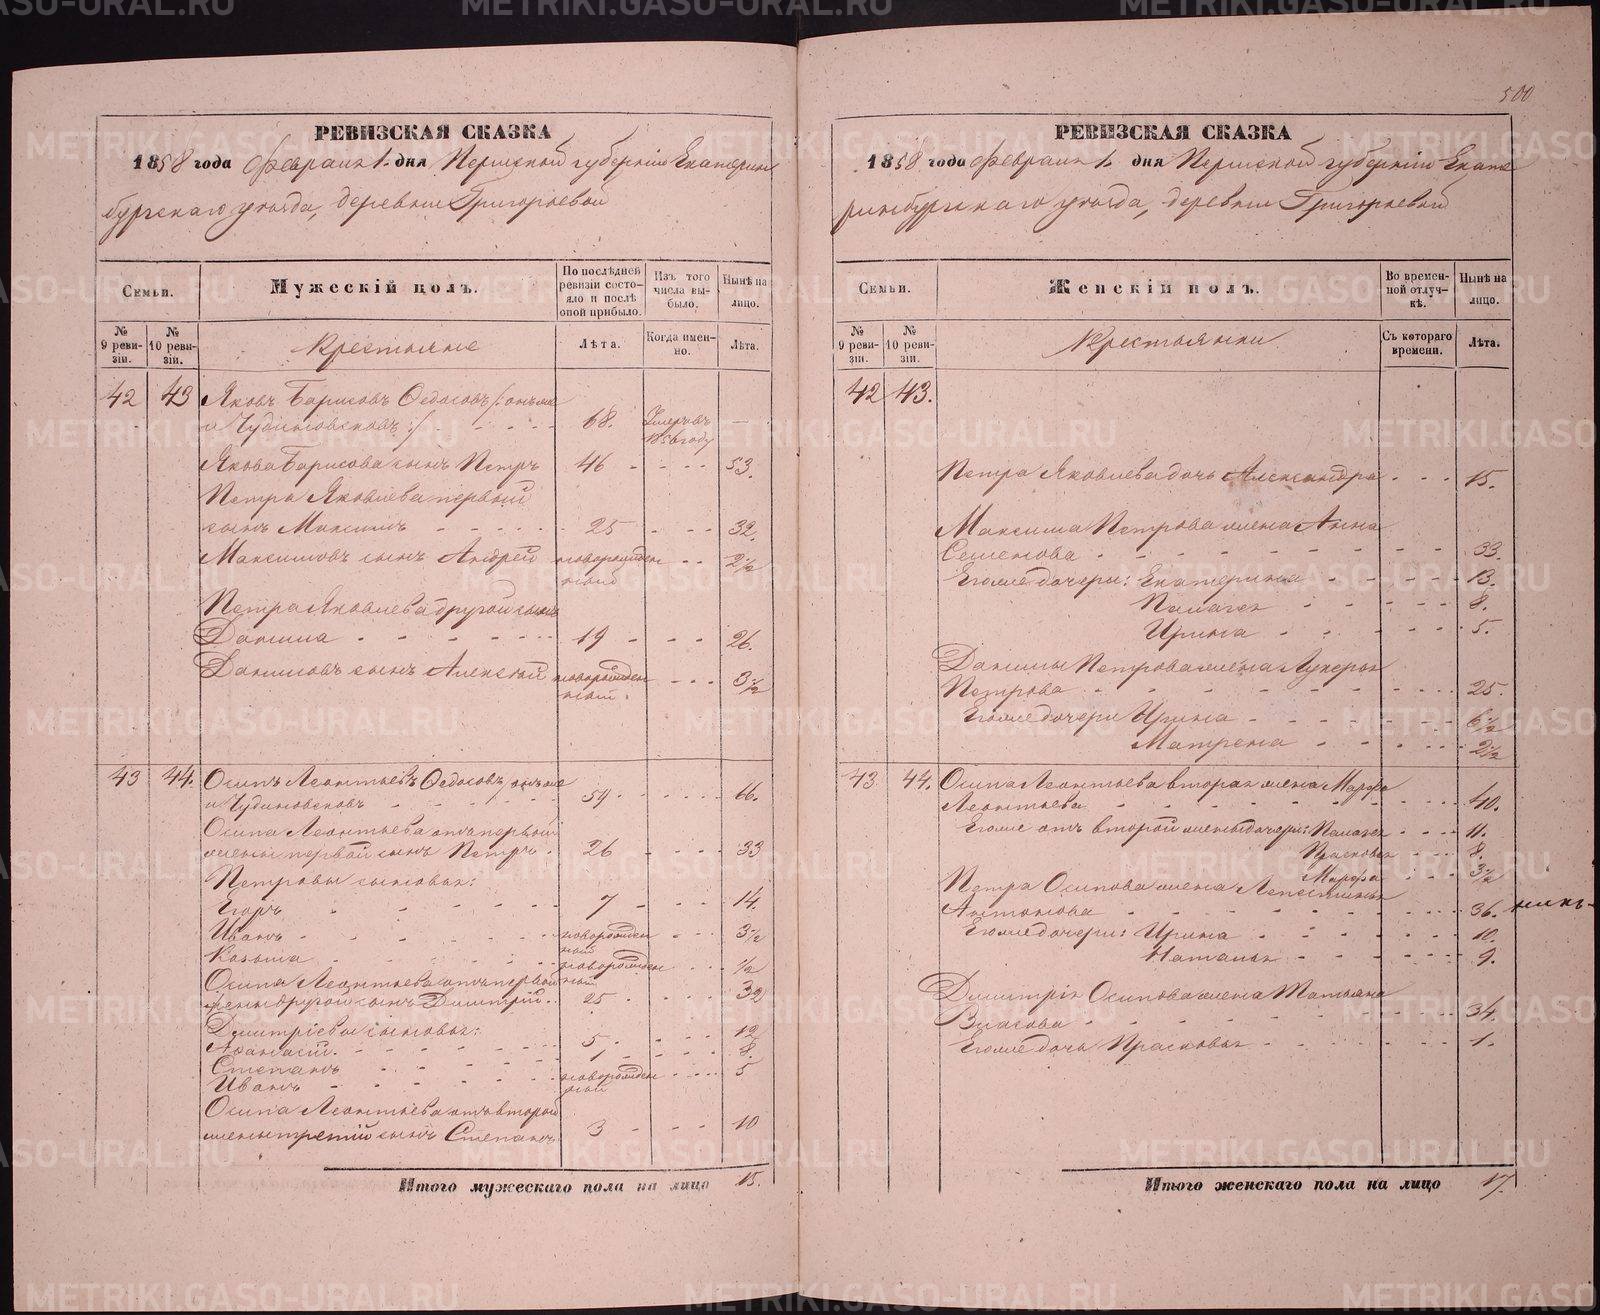 500
РЕВИЗСКАЯ СКАЗКА
1858 года Февраля 1. дня Пермской губерніи Екатерин
бургскаго уѣзда, деревни Григорьевой
Семьи.
Мужескій полъ.
По послѣдней ревизіи состояло и послѣ оной прибыло.
Изъ того числа выбыло.
Нынѣ на лицо.
№ 9 ревизіи.
№ 10 ревизіи.
Крестьяне
Лѣта.
Когда именно.
Лѣта.
42 43 Яковъ Борисовъ Федосовъ /: онъ же
и Чудиновсковъ :/ - - - - 68. Умеръ въ 1856 году —
Якова Борисова сынъ Петръ 46 - - - - 53.
Петра Яковлева первый
сынъ Максимъ - - - - - 25 - - - 32.
Максимовъ сынъ Андрей новорожденный - - 2½
Петра Яковлева другой сынъ
Данила - - - - - - - 19 - - - - 26.
Даниловъ сынъ Алексѣй новорожденный. - - - 3½
43 44. Осипъ Леонтьевъ Федосовъ, онъ же
и Чудиновсковъ - - - - - 59 - - - - 66.
Осипа Леонтьева отъ первой
жены первой сынъ Петръ - 26 - - - - 33
Петровы сыновья:
Егоръ - - - - - - 7 - - - - 14.
Иванъ - - - - - новорожденный - - - 3½
Козьма - - - - - новорожденный - - - ½
Осипа Леонтьева отъ первой
жены другой сынъ Димитрій. - 25 - - - 32
Дмитріевы сыновья:
Афанасій. - - - - - - 5 - - - 12
Степанъ - - - - - - 1 - - - 8.
Иванъ - - - - - новорожденный - - - - 5
Осипа Леонтьева отъ второй
жены третій сынъ Степанъ 3 - - - - 10
Итого мужескаго пола на лицо 15.
РЕВИЗСКАЯ СКАЗКА
1858 года Февраля 1. дня Пермской губерніи Екате
ринбургскаго уѣзда, деревни Григорьевой
Семьи.
Женскій полъ.
Во временной отлучкѣ.
Нынѣ на лицо.
№ 9 ревизіи.
№ 10 ревизіи.
Крестьянки
Съ котораго времени.
Лѣта.
42 43.
Петра Яковлева дочь Александра - - - 15.
Максима Петрова жена Анна
Семенова - - - - - - - - - 33.
Его же дочери: Екатерина - - - - - 13.
Палагея - - - - - 8.
Ирина - - - - - 5.
Данилы Петрова жена Лукерья
Петрова - - - - - - - - - 25.
Его же дочери Ирина - - - - - 6½
Матрена - - - - - 2½
43 44. Осипа Леонтьева вторая жена Марфа
Леонтьева - - - - - - - - - 40.
Его же отъ второй жены дочери: Палагея - - - 11.
Прасковья - - - 8.
Марфа - - - 3½
Петра Осипова жена
Антонова - - - - - - - - - 36.
Его же дочери: Ирина - - - - - 10.
Наталья - - - - - 9.
Димитрія Осипова жена Татьяна
Власова - - - - - - - - - 34.
Его же дочь Прасковья - - - - - 1.
Итого женскаго пола на лицо 17.
METRIKI.GASO-URAL.RU